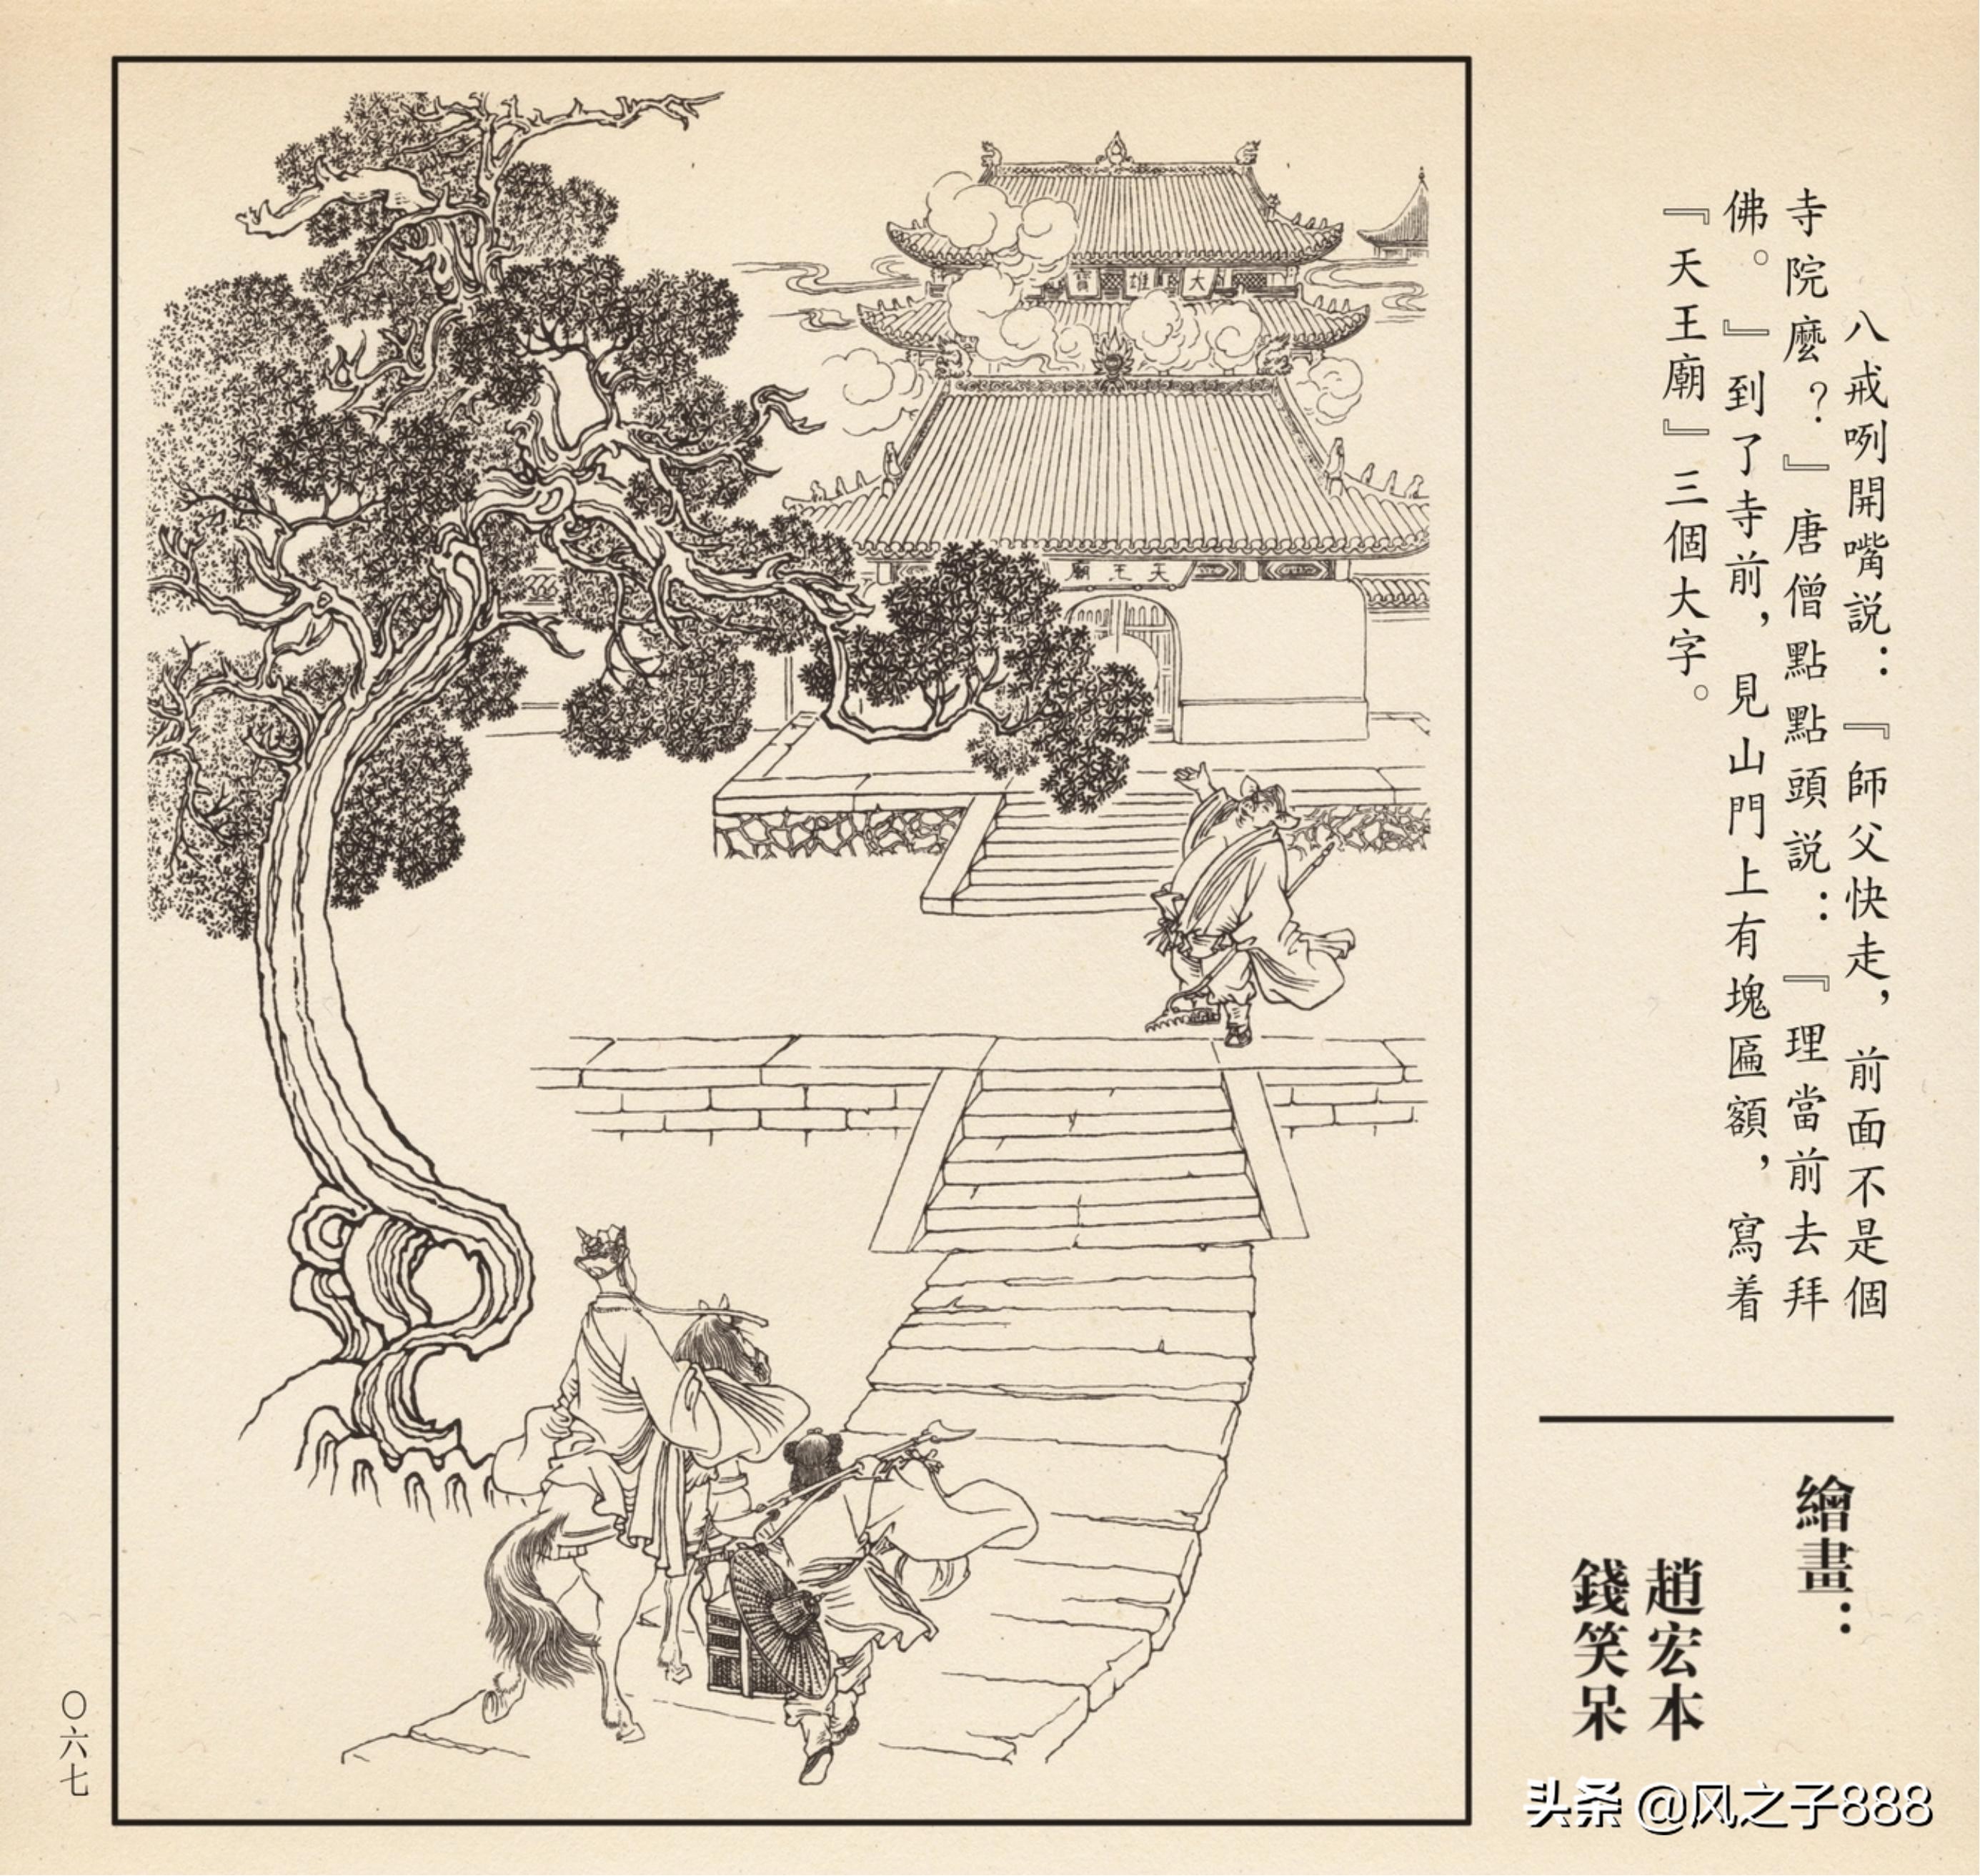 八戒咧開嘴説：『師父快走，前面不是個
寺院麼？』唐僧點點頭説：『理當前去拜
佛。』到了寺前，見山門上有塊匾額，寫着
『天王廟』三個大字。
繪畫：
趙宏本
錢笑呆
大雄寶
天王廟
〇六七
头条 @风之子888